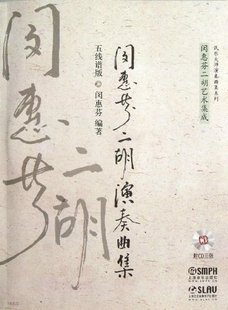 民乐大师演奏曲集系列
闵惠芬二胡艺术集成
闵惠芬
二胡
闵惠芬二胡演奏曲集
五线谱版
闵惠芬 编著
CD
附CD三张
SMPH
上海音乐出版社
SLAV